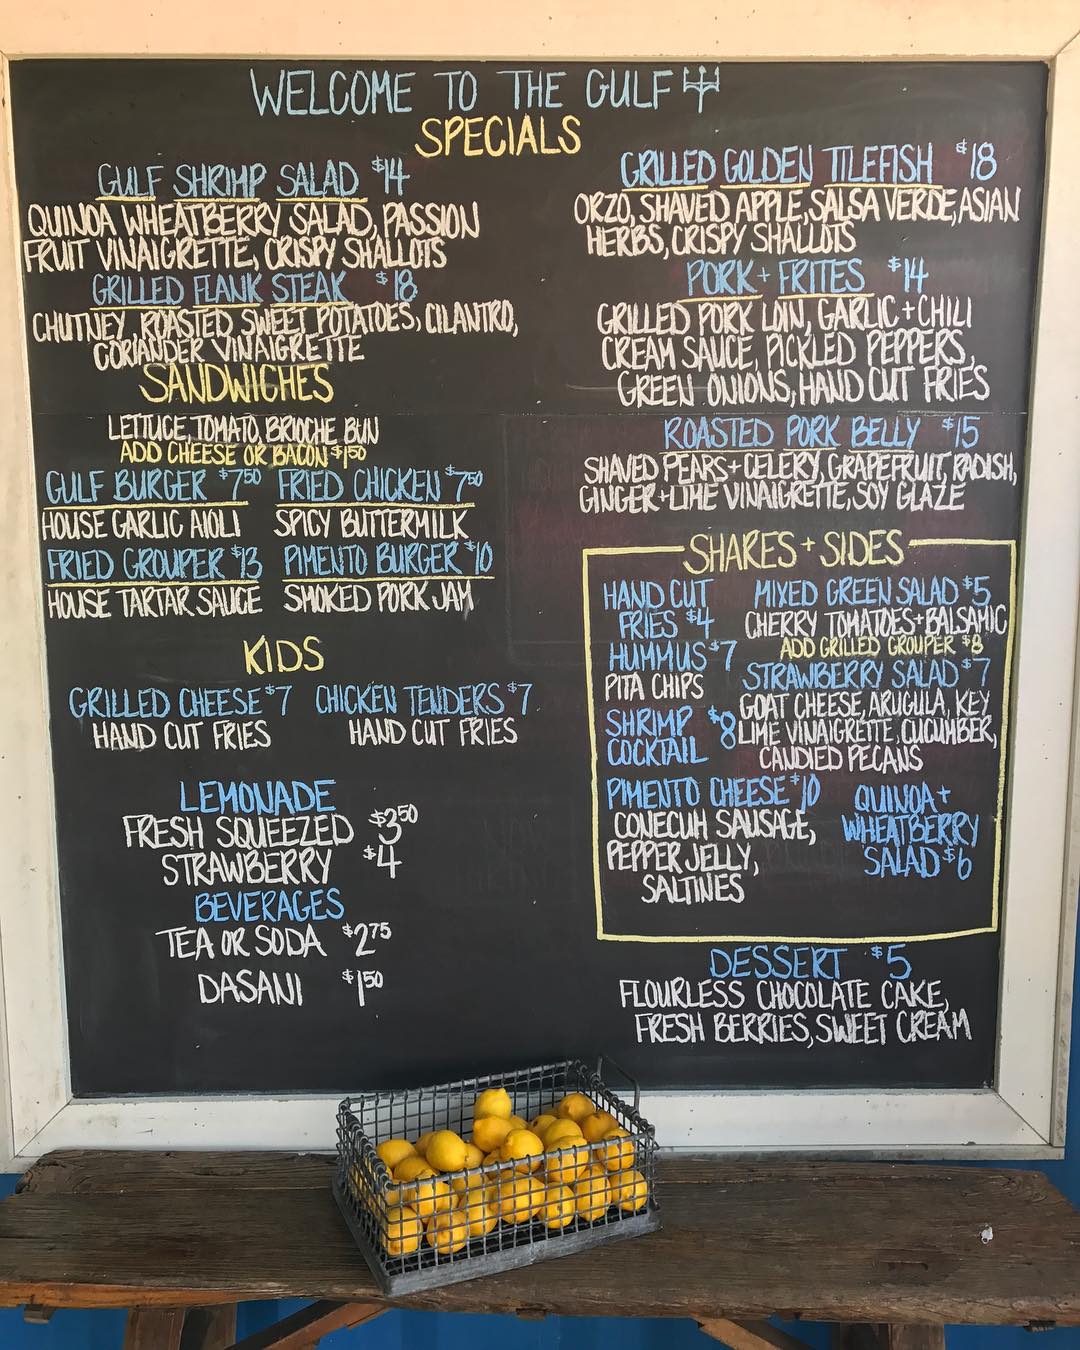 WELCOME TO THE GULF
SPECIALS
GULF SHRIMP SALAD $14
QUINOA WHEATBERRY SALAD, PASSION
FRUIT VINAIGRETTE, CRISPY SHALLOTS
GRILLED FLANK STEAK $18
CHUTNEY, ROASTED SWEET POTATOES, CILANTRO,
CORIANDER VINAIGRETTE
GRILLED GOLDEN TILEFISH $18
ORZO, SHAVED APPLE, SALSA VERDE, ASIAN
HERBS, CRISPY SHALLOTS
PORK + FRITES $14
GRILLED PORK LOIN, GARLIC + CHILI
CREAM SAUCE, PICKLED PEPPERS,
GREEN ONIONS, HAND CUT FRIES
ROASTED PORK BELLY $15
SHAVED PEARS + CELERY, GRAPEFRUIT, RADISH,
GINGER + LIME VINAIGRETTE, SOY GLAZE
SANDWICHES
LETTUCE, TOMATO, BRIOCHE BUN
ADD CHEESE OR BACON $1.50
GULF BURGER $7 50
HOUSE GARLIC AIOLI
FRIED CHICKEN $7 50
SPICY BUTTERMILK
FRIED GROUPER $13
HOUSE TARTAR SAUCE
PIMENTO BURGER $10
SMOKED PORK JAM
KIDS
GRILLED CHEESE $7
HAND CUT FRIES
CHICKEN TENDERS $7
HAND CUT FRIES
LEMONADE
FRESH SQUEEZED $3 50
STRAWBERRY $4
BEVERAGES
TEA OR SODA $2 75
DASANI $1 50
SHARES + SIDES
HAND CUT
FRIES $4
HUMMUS $7
PITA CHIPS
SHRIMP
COCKTAIL $8
PIMENTO CHEESE $10
CONECUH SAUSAGE,
PEPPER JELLY,
SALTINES
MIXED GREEN SALAD $5
CHERRY TOMATOES + BALSAMIC
ADD GRILLED GROUPER $8
STRAWBERRY SALAD $7
GOAT CHEESE, ARUGULA, KEY
LIME VINAIGRETTE, CUCUMBER,
CANDIED PECANS
QUINOA +
WHEATBERRY
SALAD $6
DESSERT $5
FLOURLESS CHOCOLATE CAKE,
FRESH BERRIES, SWEET CREAM